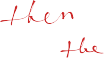 then
the